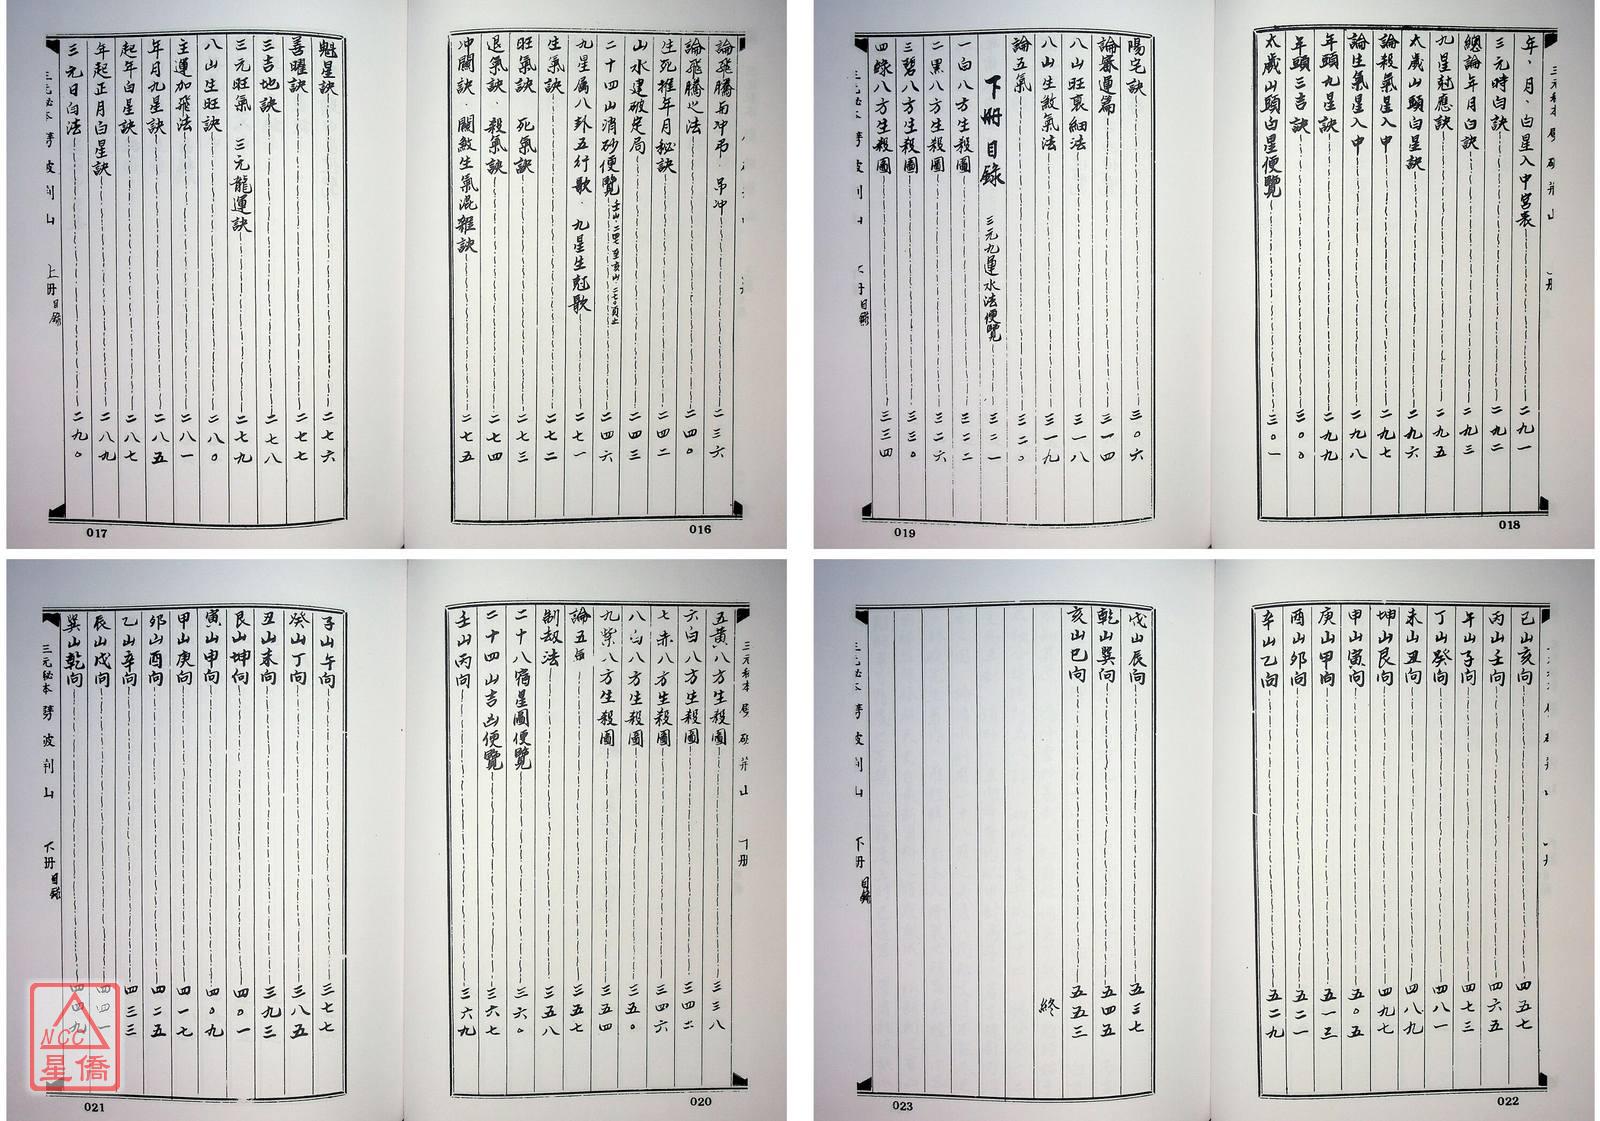 論飛騰與冲弔·吊冲 二三六
論飛騰之法 二四〇
生死推年月秘訣 二四二
山水建破定局 二四三
二十四山消砂便覽 二四六
九星属八卦五行歌·九星生尅歌 二七一
生氣訣 二七二
旺氣訣 死氣訣 二七三
退氣訣·殺氣訣 二七四
冲關訣·關煞生氣混雜訣 二七五
016
魁星訣 二七六
善曜訣 二七七
三吉地訣 二七八
三元旺氣·三元龍運訣 二七九
八山生旺訣 二八〇
主運加飛法 二八一
年月九星訣 二八五
起年白星訣 二八七
年起正月白星訣 二八九
三元日白法 二九〇
三元秘本 劈破荆山 上册目錄
017
年、月、白星入中宮表 二九一
三元時白訣 二九二
總論年月白訣 二九三
九星尅應訣 二九五
太歲山頭白星訣 二九六
論殺氣星入中 二九七
論生氣星入中 二九八
年頭九星訣 二九九
年頭三吉訣 三〇〇
太歲山頭白星便覽 三〇一
018
陽宅訣 三〇六
論審運篇 三一四
八山旺衰細法 三一八
八山生煞氣法 三一九
論五氣 三二〇
下册目錄 三元九運水法便覽 三二一
一白八方生殺圖 三二二
二黑八方生殺圖 三二六
三碧八方生殺圖 三三〇
四綠八方生殺圖 三三四
三元秘本 劈破荆山 下册目錄
019
五黃八方生殺圖 三三八
六白八方生殺圖 三四二
七赤八方生殺圖 三四六
八白八方生殺圖 三五〇
九紫八方生殺圖 三五四
論五 三五七
制刼法 三五八
二十八宿星圖便覽 三六〇
二十四山吉凶便覽 三六七
壬山丙向 三六九
020
子山午向 三七七
癸山丁向 三八五
丑山未向 三九三
艮山坤向 四〇一
寅山申向 四〇九
甲山庚向 四一七
卯山酉向 四二五
乙山辛向 四三三
辰山戌向 四四一
巽山乾向 四四九
三元秘本 劈破荆山 下册目錄
021
巳山亥向 四五七
丙山壬向 四六五
午山子向 四七三
丁山癸向 四八一
未山丑向 四八九
坤山艮向 四九七
申山寅向 五〇五
庚山甲向 五一三
酉山卯向 五二一
辛山乙向 五二九
022
戌山辰向 五三七
乾山巽向 五四五
亥山巳向 五五三
終
三元秘本 劈破荆山 下册目錄
023
NCC
星僑